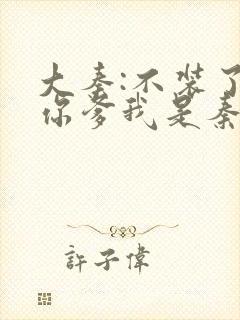 大秦:不装了
你爹我是秦
許子偉